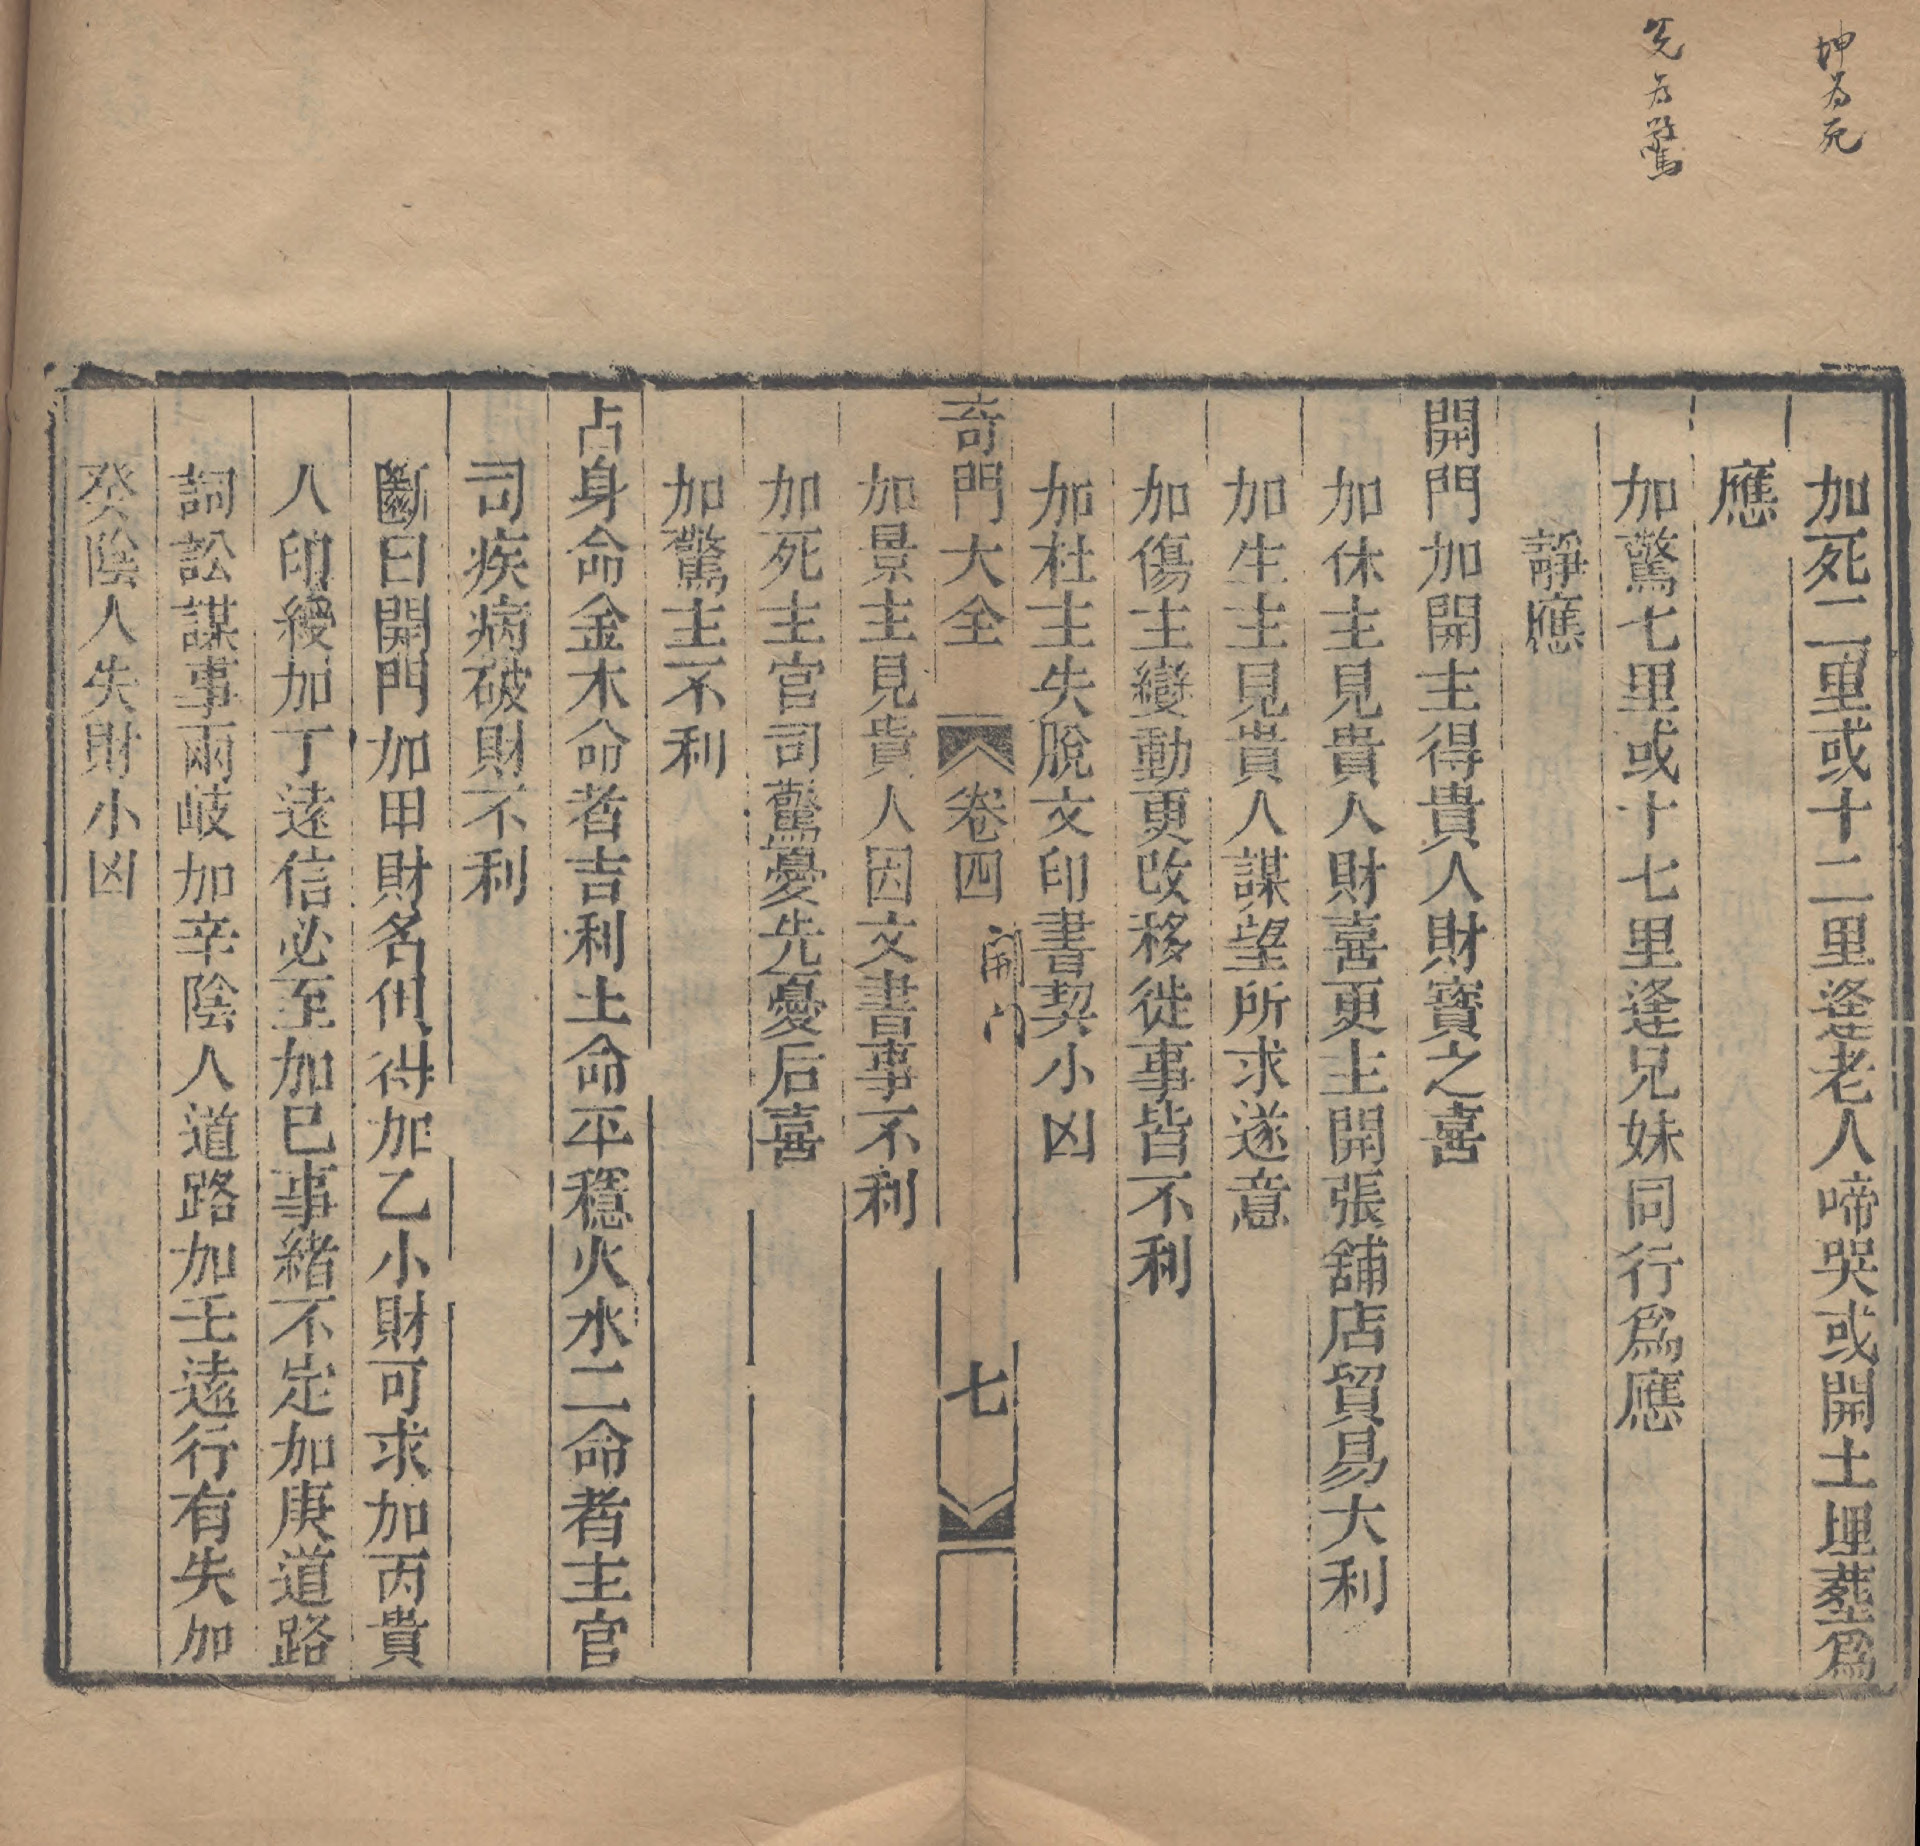 坤為死
兌為驚
加死二里或十二里逢老人啼哭或開土埋葬爲
應
加驚七里或十七里逢兄妹同行爲應
靜應
開門加開主得貴人財寳之喜
加休主見貴人財喜更主開張舖店貿易大利
加生主見貴人謀望所求遂意
加傷主變動更改移徙事皆不利
加杜主失脫文印書契小凶
奇門大全 卷四 開门 七
加景主見貴人因文書事不利
加死主官司驚憂先憂后喜
加驚主不利
占身命金木命者吉利土命平穩火水二命者主官
司疾病破財不利
斷曰開門加甲財名俱得加乙小財可求加丙貴
人印綬加丁遠信必至加巳事緒不定加庚道路
詞訟謀事兩岐加辛陰人道路加壬遠行有失加
癸陰人失財小凶